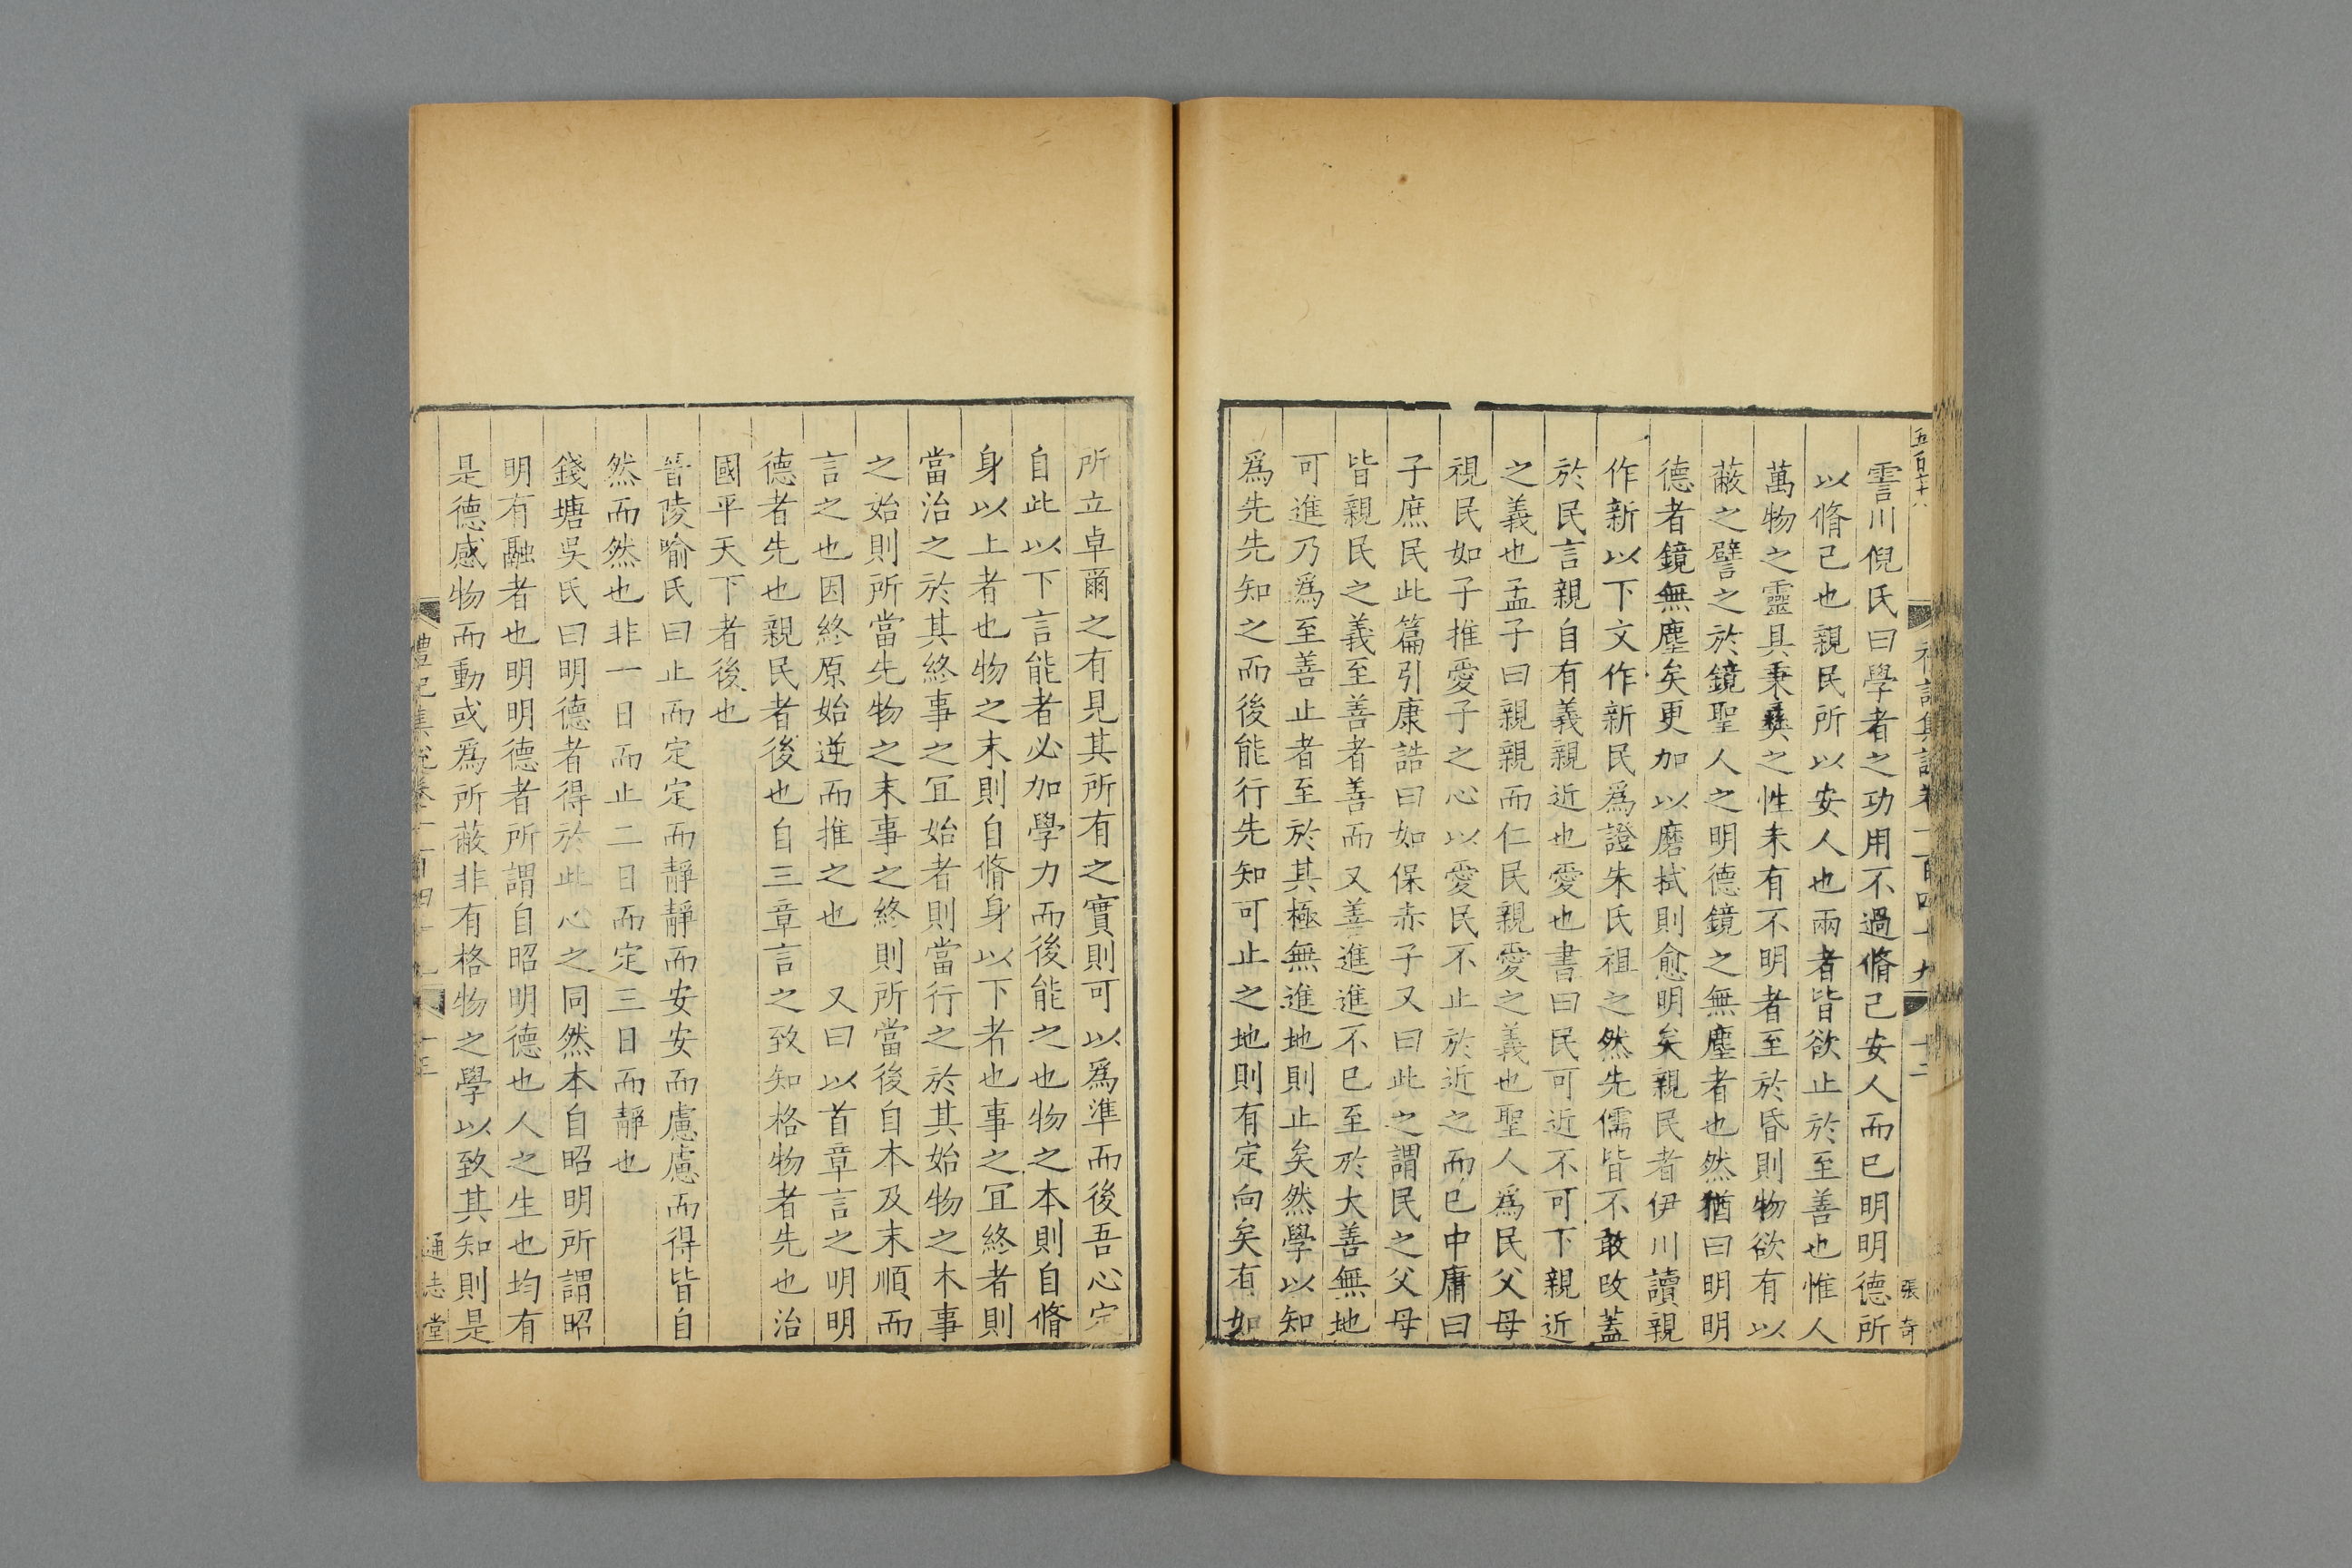 五百六十八
禮記集說卷一百四十九
十二
張奇
霅川倪氏曰學者之功用不過脩己安人而已明明德所
以脩己也親民所以安人也兩者皆欲止於至善也惟人
萬物之靈具秉彝之性未有不明者至於昏則物欲有以
蔽之譬之於鏡聖人之明德鏡之無塵者也然猶曰明明
德者鏡無塵矣更加以磨拭則愈明矣親民者伊川讀親
作新以下文作新民爲證朱氏祖之然先儒皆不敢改蓋
於民言親自有義親近也愛也書曰民可近不可下親近
之義也孟子曰親親而仁民親愛之義也聖人爲民父母
視民如子推愛子之心以愛民不止於近之而已中庸曰
子庶民此篇引康誥曰如保赤子又曰此之謂民之父母
皆親民之義至善者善而又善進進不已至於大善無地
可進乃爲至善止者至於其極無進地則止矣然學以知
爲先先知之而後能行先知可止之地則有定向矣有如
所立卓爾之有見其所有之實則可以爲準而後吾心定
自此以下言能者必加學力而後能之也物之本則自脩
身以上者也物之末則自脩身以下者也事之冝終者則
當治之於其終事之冝始者則當行之於其始物之本事
之始則所當先物之末事之終則所當後自本及末順而
言之也因終原始逆而推之也　又曰以首章言之明明
德者先也親民者後也自三章言之致知格物者先也治
國平天下者後也
晉陵喻氏曰止而定定而靜靜而安安而慮慮而得皆自
然而然也非一日而止二日而定三日而靜也
錢塘吳氏曰明德者得於此心之同然本自昭明所謂昭
明有融者也明明德者所謂自昭明德也人之生也均有
是德感物而動或爲所蔽非有格物之學以致其知則是
禮記集說卷一百四十九
通志堂